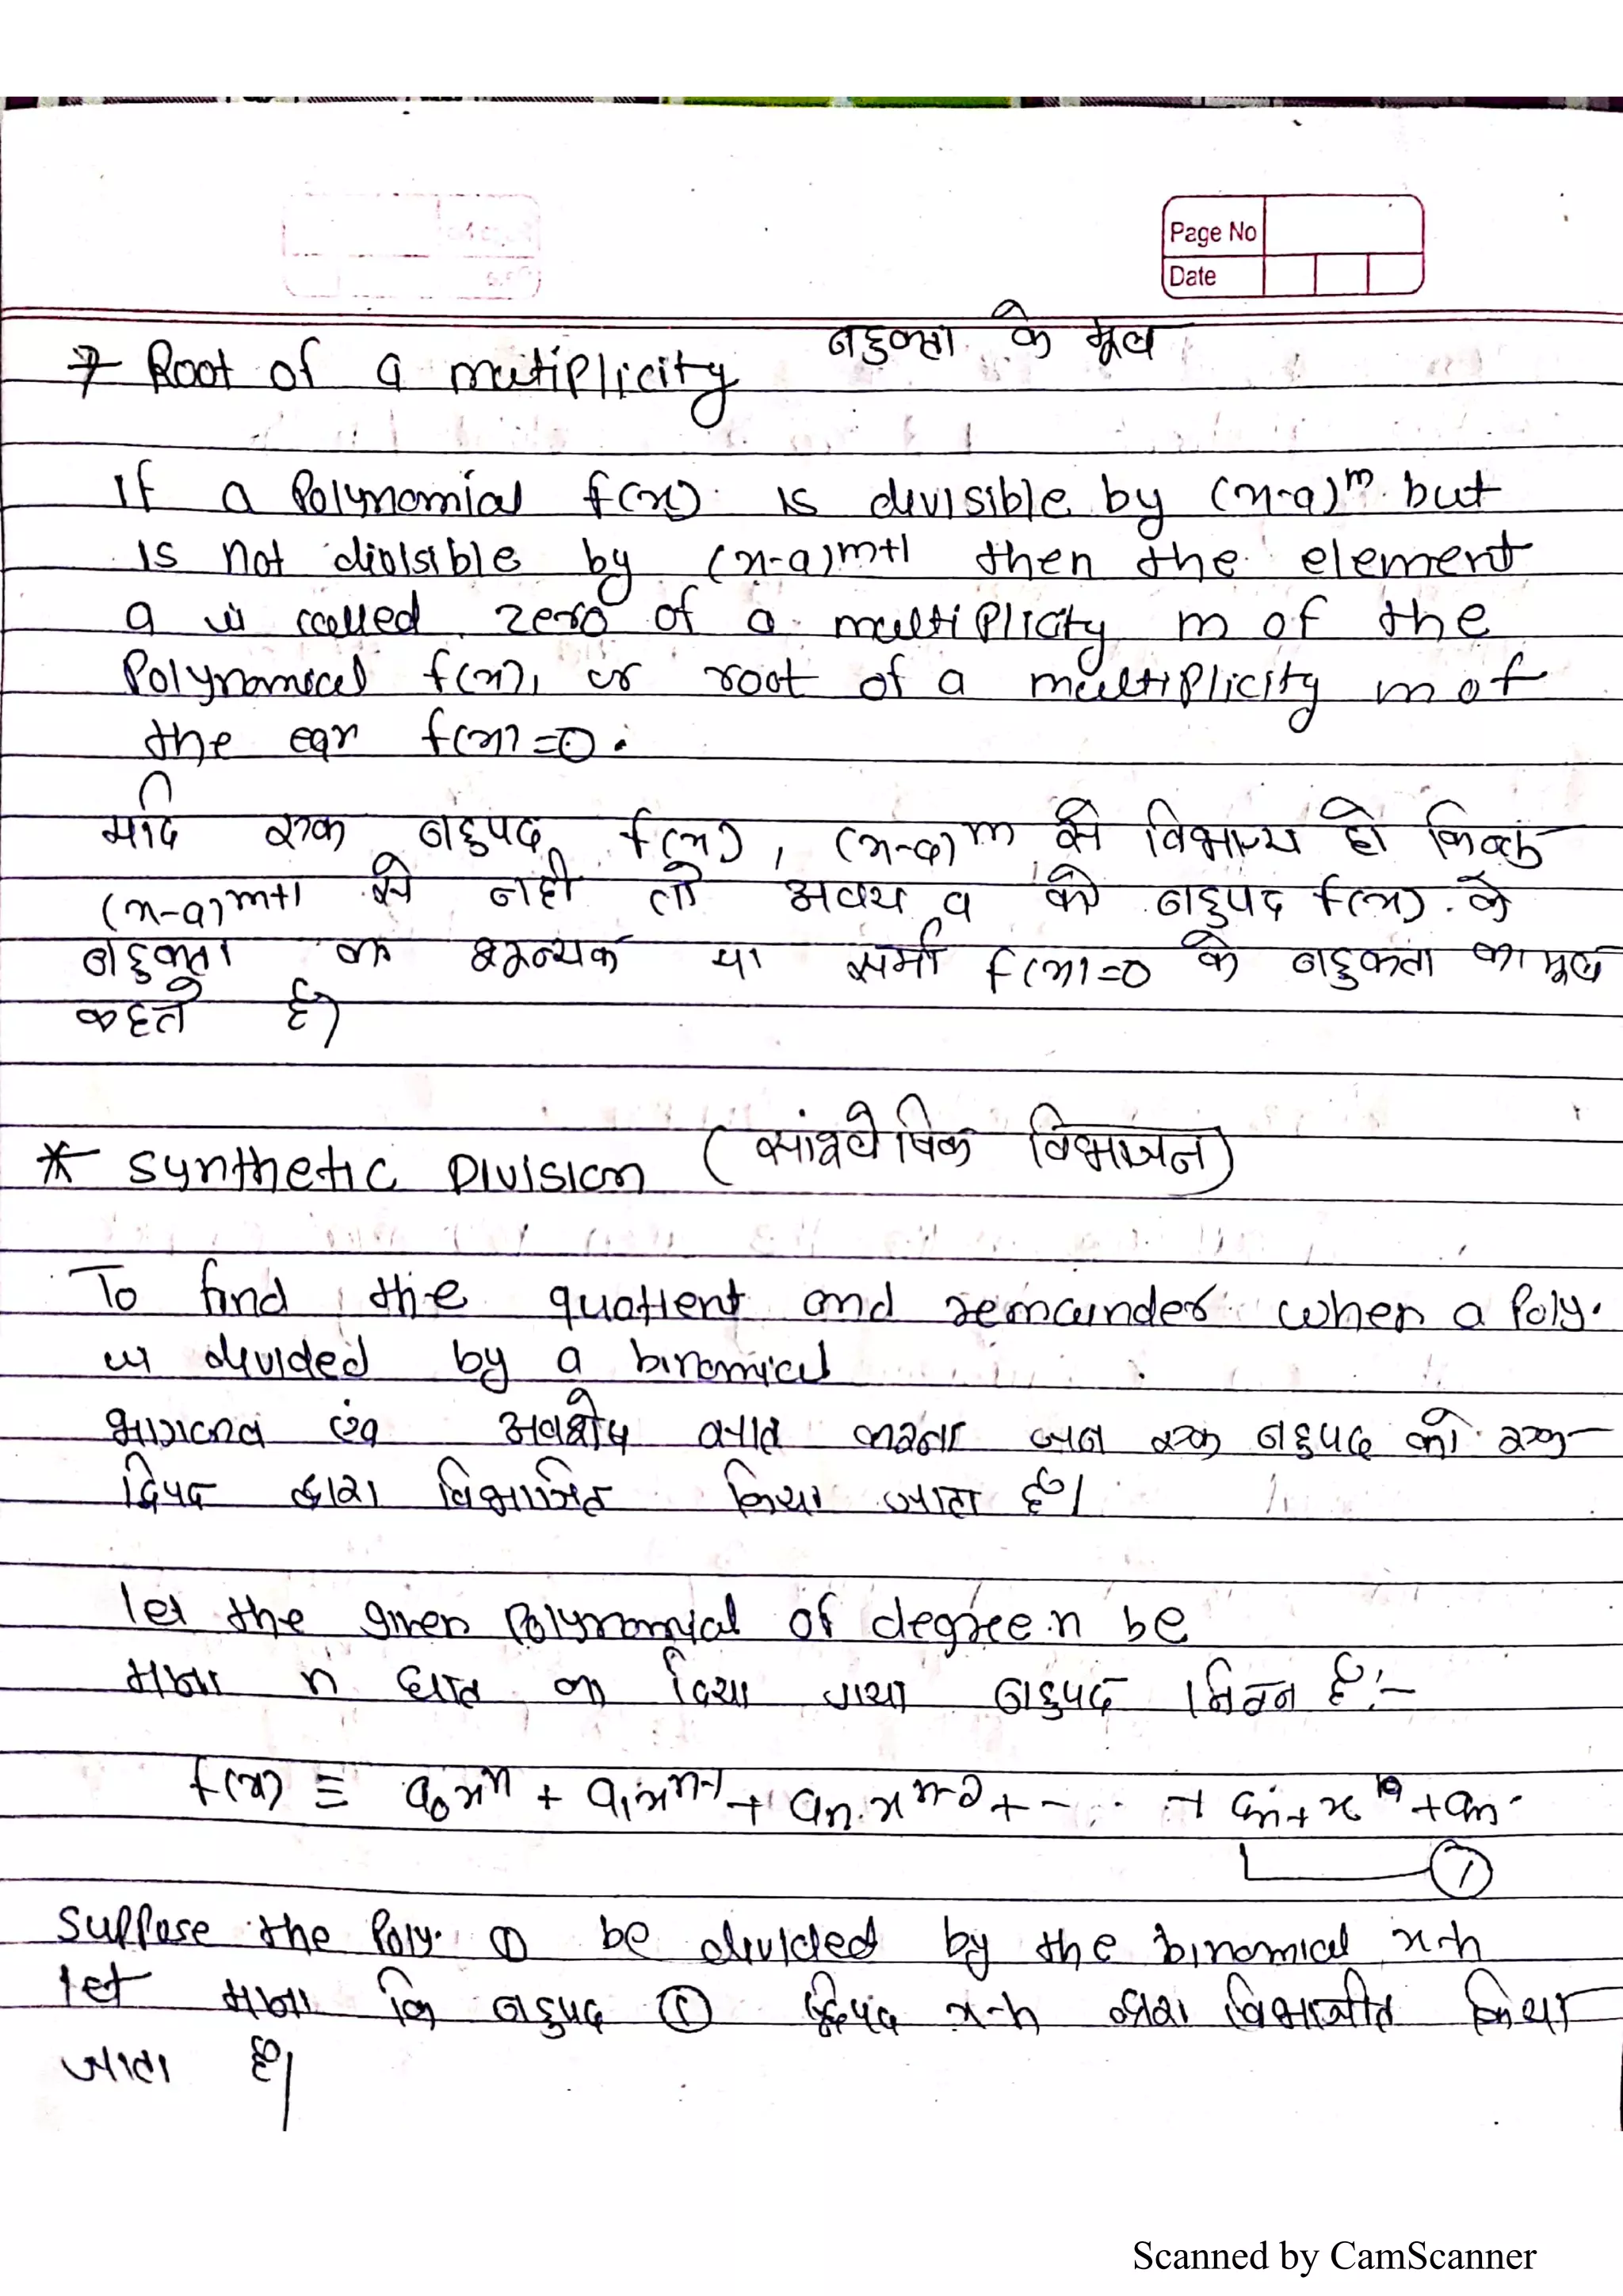 Page No
Date
बहुकता के मूल
7 Root of a mutiplicity
If a Polynomial f(x) is divisible by (x-a)^m but
is not divisible by (x-a)^m+1 then the element
a is called zero of a multiplicity m of the
Polynomial f(x), or root of a multiplicity m of
the eqn f(x)=0.
यदि एक बहुपद f(x), (x-a)^m से विभाज्य हो किन्तु
(x-a)^m+1 से नही तो अवयव को बहुपद f(x) के
बहुकता का शून्यक या समी f(x)=0 के बहुकता का मूल
कहते है।
* Synthetic Division (सांश्लेषिक विभाजन)
To find the quotient and remainder when a Poly.
is divided by a binomial
भागफल एंव अवशेष ज्ञात करना जब एक बहुपद को एक
द्विपद द्वारा विभाजित किया जाता है।
let the given Polynomial of degree n be
माना n घात का दिया गया बहुपद निम्न है:-
f(x) ≡ a₀xⁿ + a₁xⁿ⁻¹ + aₙ xⁿ⁻² + - . . + aₙ₊ x + aₙ.
1
Suppose the Poly. ① be divided by the binomial x-h
let माना कि बहुपद ① द्विपद x-h द्वारा विभाजीत किया
जाता है।
Scanned by CamScanner